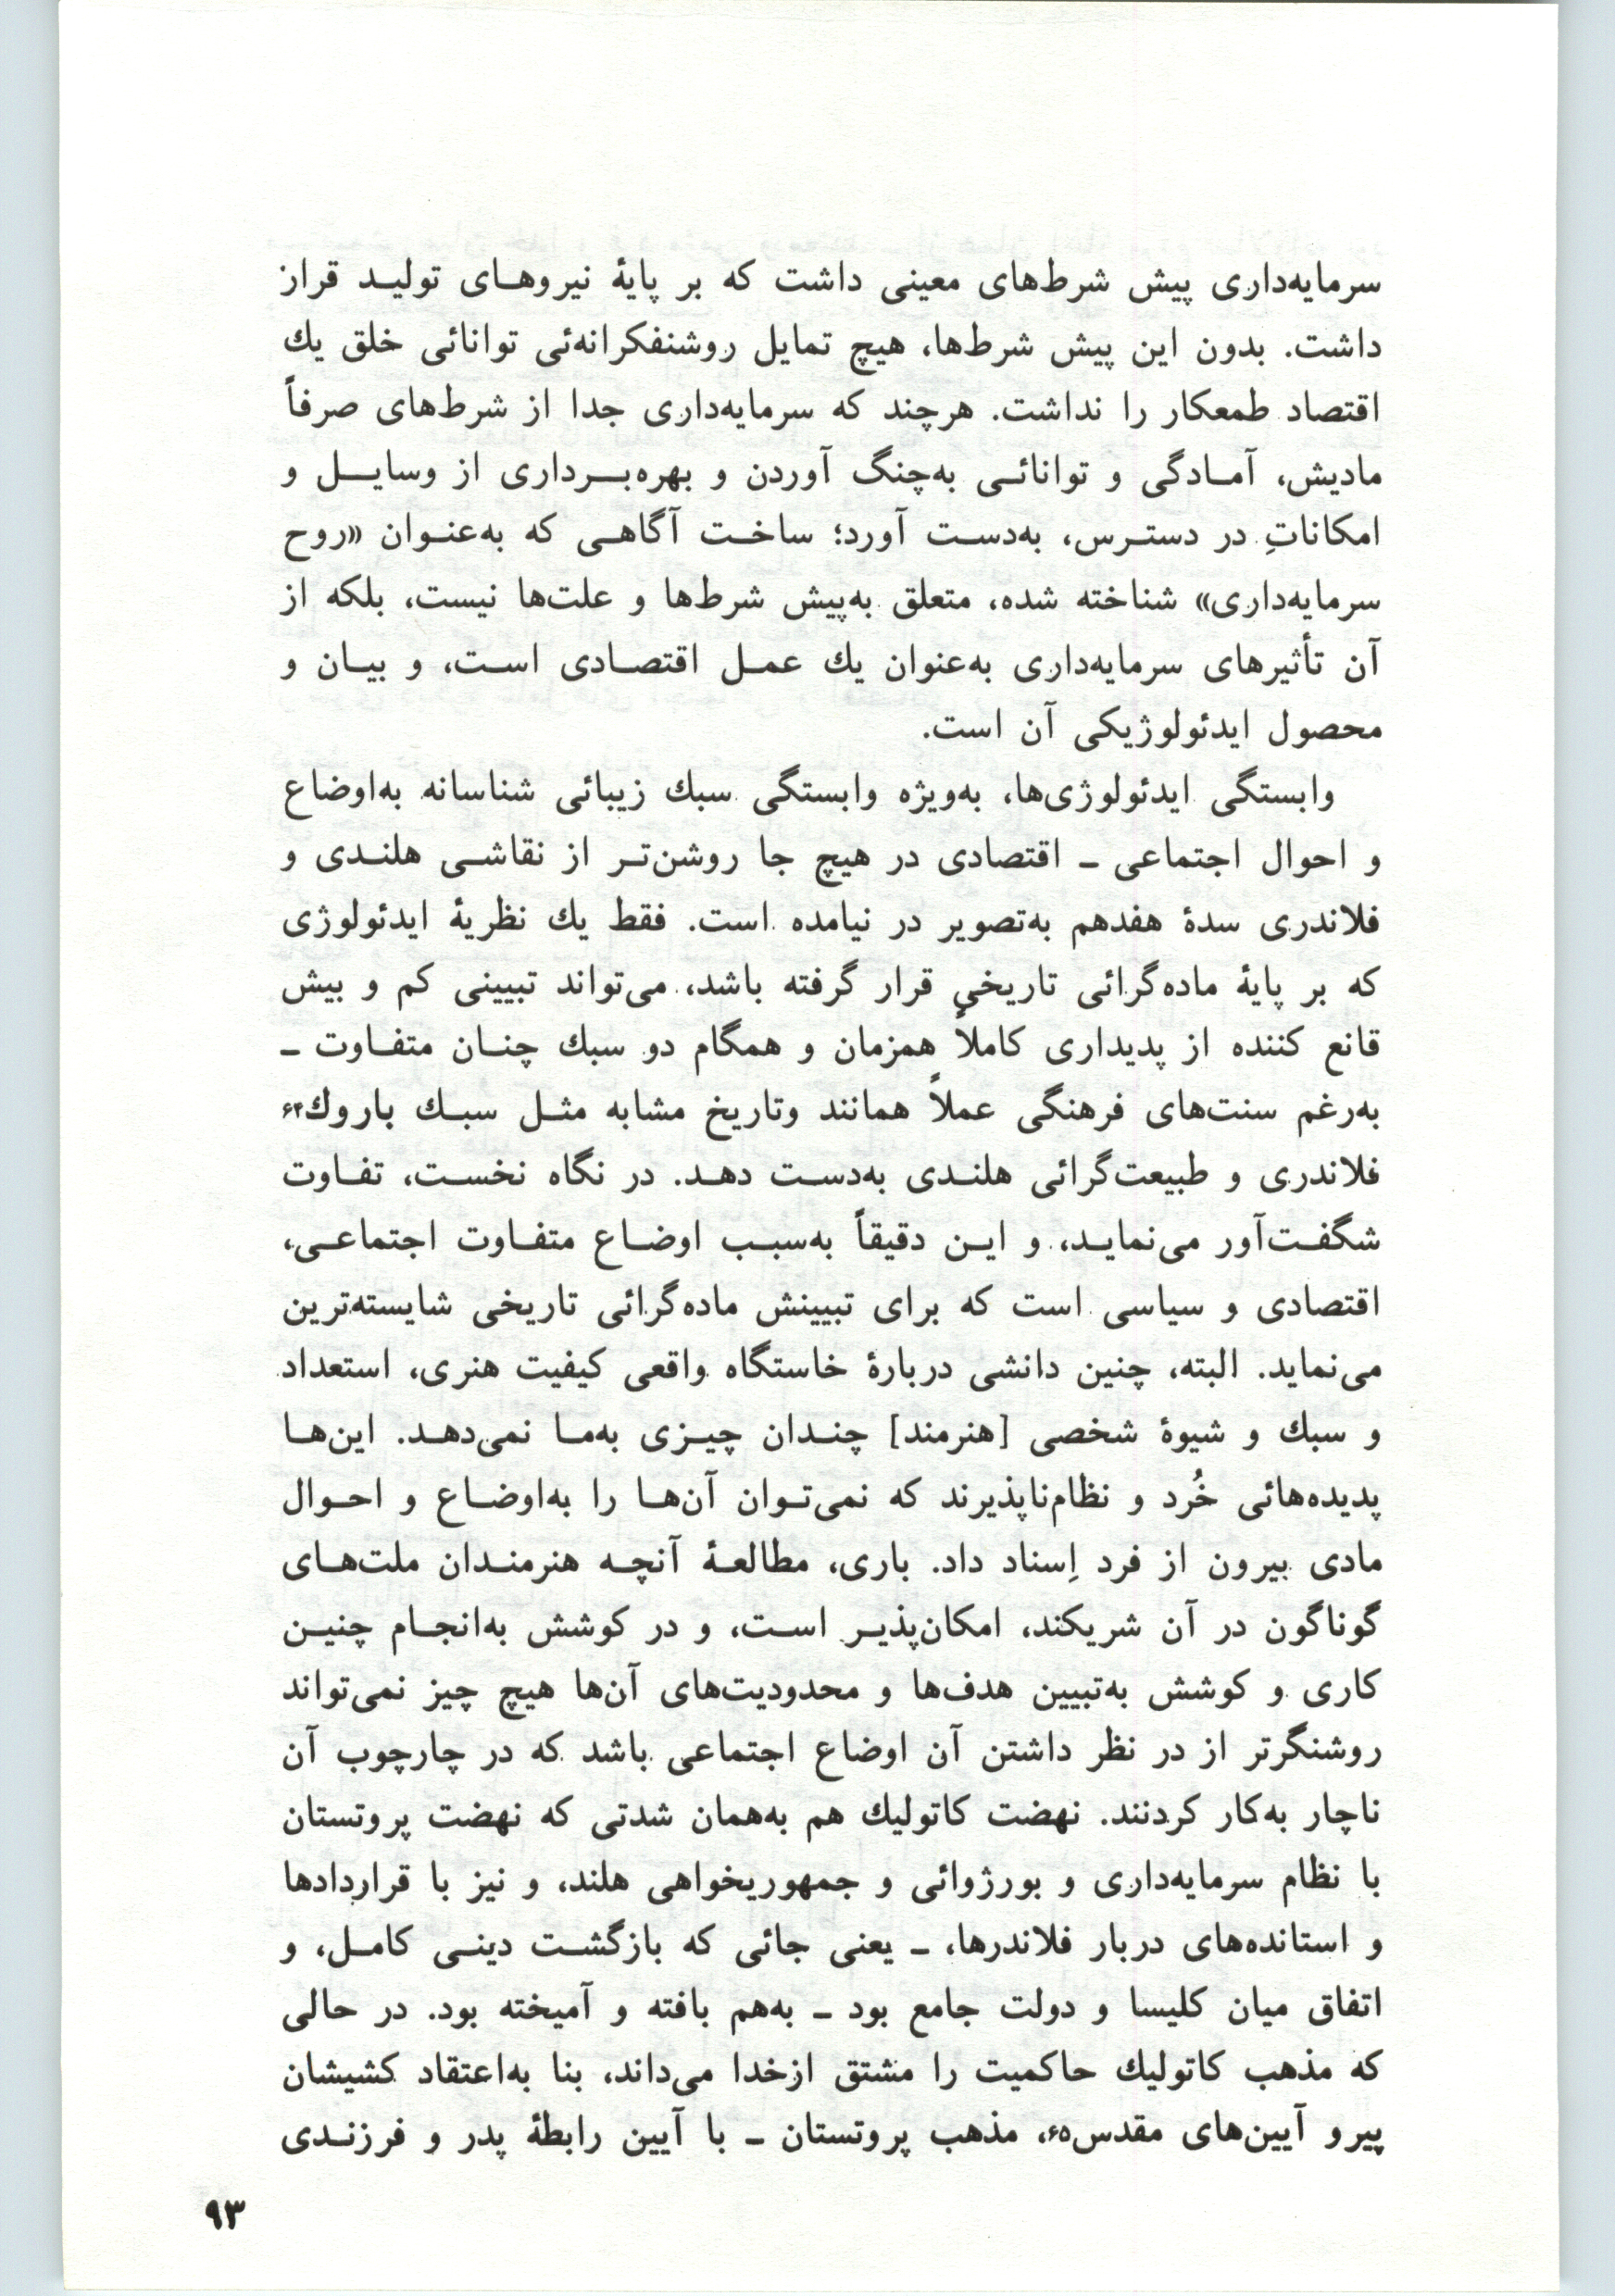 سرمایه‌داری پیش شرط‌های معینی داشت که بر پایهٔ نیروهای تولید قراز
داشت. بدون این پیش شرط‌ها، هیچ تمایل روشنفکرانه‌ئی توانائی خلق یك
اقتصاد طمعکار را نداشت. هرچند که سرمایه‌داری جدا از شرط‌های صرفاً
مادیش، آمادگی و توانائی به‌چنگ آوردن و بهره‌برداری از وسایل و
امکاناتِ در دسترس، به‌دست آورد؛ ساخت آگاهی که به‌عنوان «روح
سرمایه‌داری» شناخته شده، متعلق به‌پیش شرط‌ها و علت‌ها نیست، بلکه از
آن تأثیرهای سرمایه‌داری به‌عنوان یك عمل اقتصادی است، و بیان و
محصول ایدئولوژیکی آن است.
وابستگی ایدئولوژی‌ها، به‌ویژه وابستگی سبك زیبائی شناسانه به‌اوضاع
و احوال اجتماعی ـ اقتصادی در هیچ جا روشن‌تر از نقاشی هلندی و
فلاندری سدهٔ هفدهم به‌تصویر در نیامده است. فقط یك نظریهٔ ایدئولوژی
که بر پایهٔ ماده‌گرائی تاریخی قرار گرفته باشد، می‌تواند تبیینی کم و بیش
قانع کننده از پدیداری کاملاً همزمان و همگام دو سبك چنان متفاوت ـ
به‌رغم سنت‌های فرهنگی عملاً همانند وتاریخ مشابه مثل سبك باروك۶۴
فلاندری و طبیعت‌گرائی هلندی به‌دست دهد. در نگاه نخست، تفاوت
شگفت‌آور می‌نماید، و این دقیقاً به‌سبب اوضاع متفاوت اجتماعی،
اقتصادی و سیاسی است که برای تبیینش ماده‌گرائی تاریخی شایسته‌ترین
می‌نماید. البته، چنین دانشی دربارهٔ خاستگاه واقعی کیفیت هنری، استعداد
و سبك و شیوهٔ شخصی [هنرمند] چندان چیزی به‌ما نمی‌دهد. این‌ها
پدیده‌هائی خُرد و نظام‌ناپذیرند که نمی‌توان آن‌ها را به‌اوضاع و احوال
مادی بیرون از فرد اِسناد داد. باری، مطالعهٔ آنچه هنرمندان ملت‌های
گوناگون در آن شریکند، امکان‌پذیر است، و در کوشش به‌انجام چنین
کاری و کوشش به‌تبیین هدف‌ها و محدودیت‌های آن‌ها هیچ چیز نمی‌تواند
روشنگرتر از در نظر داشتن آن اوضاع اجتماعی باشد که در چارچوب آن
ناچار به‌کار کردنند. نهضت کاتولیك هم به‌همان شدتی که نهضت پروتستان
با نظام سرمایه‌داری و بورژوائی و جمهوریخواهی هلند، و نیز با قراردادها
و استانده‌های دربار فلاندرها، ـ یعنی جائی که بازگشت دینی کامل، و
اتفاق میان کلیسا و دولت جامع بود ـ به‌هم بافته و آمیخته بود. در حالی
که مذهب کاتولیك حاکمیت را مشتق ازخدا می‌داند، بنا به‌اعتقاد کشیشان
پیرو آیین‌های مقدس۶۵، مذهب پروتستان ـ با آیین رابطهٔ پدر و فرزندی
۹۳